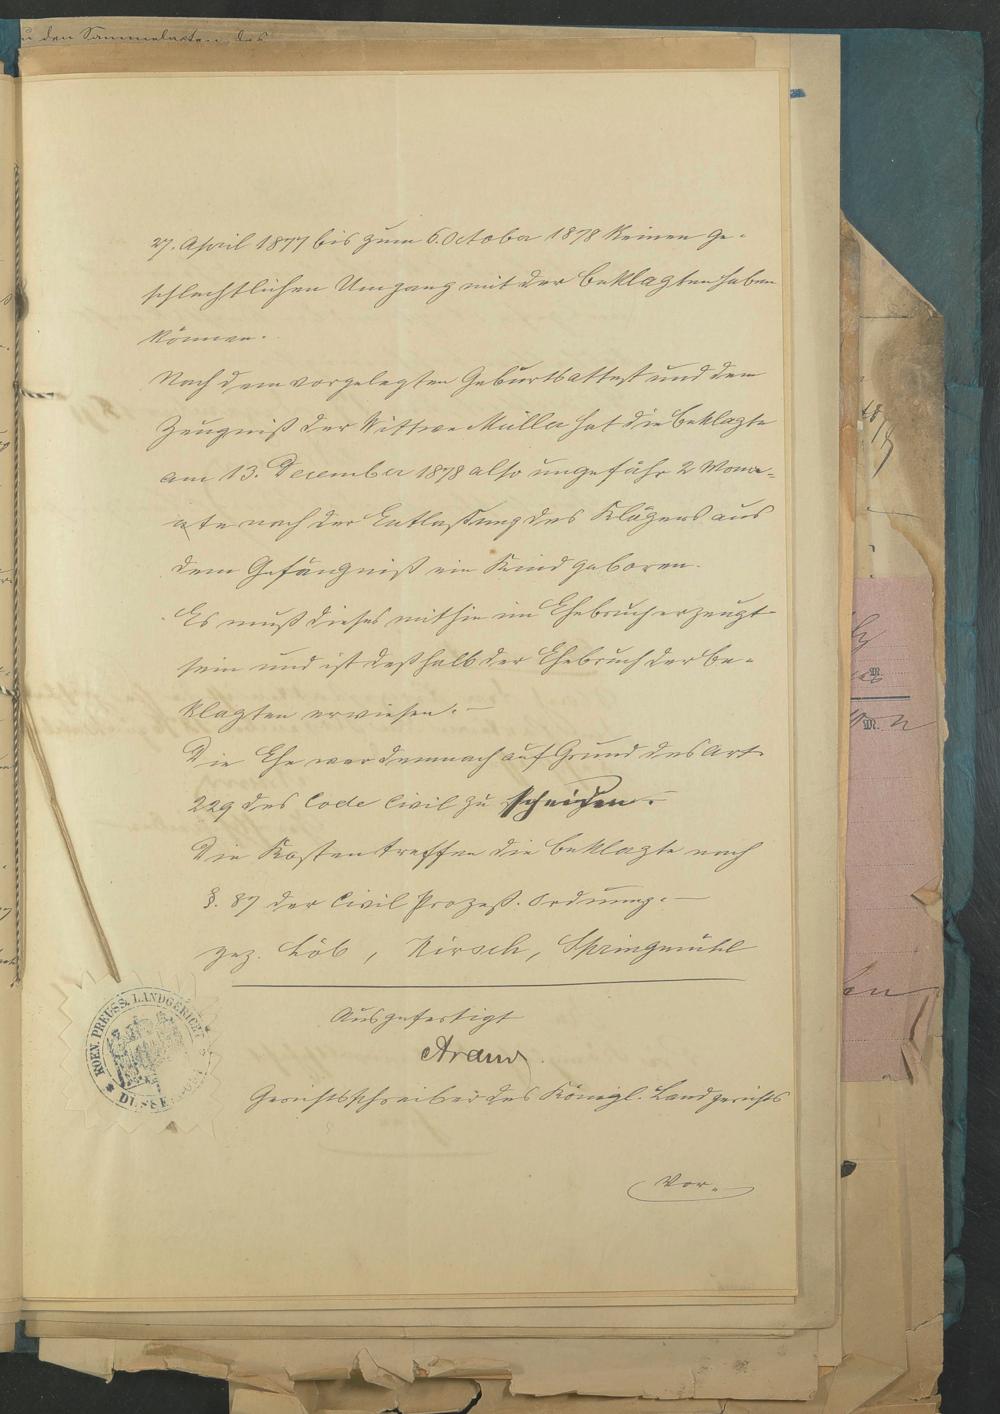 u den Sammelakten des
27. April 1877 bis zum 6. October 1878 keinen ge-
schlechtlichen Umgang mit der Beklagten haben
können.
Nach dem vorgelegten Geburtsattest und dem
Zeugniß der Wittwe Müller hat die Beklagte
am 13. December 1878 also ungefähr 2 Mona-
ate nach der Entlassung des Klägers aus
dem Gefängniß ein Kind geboren.
Es muß dieses mithin im Ehebruch erzeugt
sein und ist deßhalb der Ehebruch der Be-
klagten erwiesen. —
Die Ehe war demnach auf Grund des Art.
229 des Code Civil zu scheiden. —
Die Kosten treffen die Beklagte nach
§. 87 der Civil Prozeß. Ordnung. —
gez. Löb, Kirsch, Springmühl
Ausgefertigt
Gerichtsschreiber des Königl. Landgerichts
KOEN. PREUSS. LANDGERICHT
Vor.